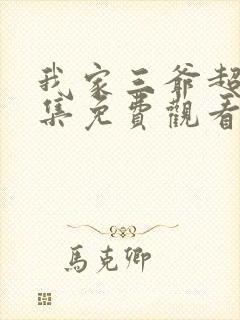 我家三爺超
集免費觀看
馬克卿